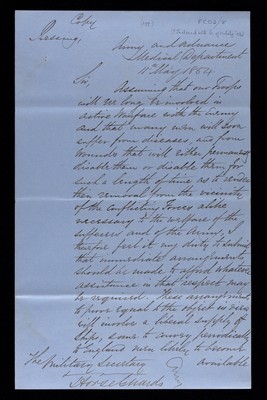 Copy
Pressing
Army and Ordnance
Medical Department
11 May 1854
Sir,
Assuming that our Troops
will 'ere long be involved in
active Warfare with the enemy
and that many men will soon
suffer from diseases, and from
Wounds that will either permanently
disable them or disable them for
such a length of time as to render
their removal from the vicinity
of the conflicting Forces alike
necessary to the welfare of the
sufferers and of the Army, I
therefore feel it my duty to submit
that immediate arrangements
should be made to afford whatever
assistance in that respect may
be required. These arrangements,
to prove equal to the object in view
will involve a liberal supply of
Ships, some to convey periodically,
to England men likely to become
available
The Military Secretary
Horse Guards